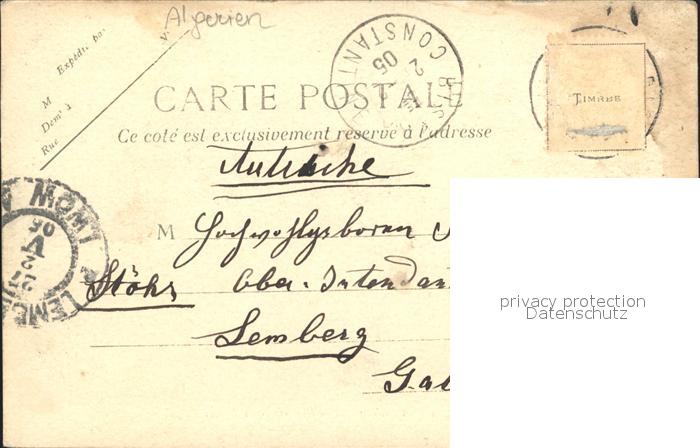 Algerien
Expédié par
M
Demt à
Rue
CONSTANT
2
05
CARTE POSTALE
TIMBRE
Ce côté est exclusivement réservé à l'adresse
Autriche
M Hochwohlgeboren
Stöhr Ober-Intendan
Lemberg
Gal
LWÓW 1
LEMB
V
05
privacy protection
Datenschutz